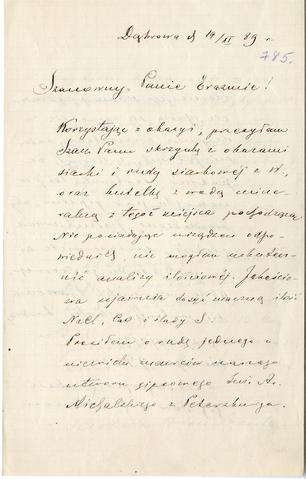 Dąbrowa d 14/XI 89 r.
785.
Szanowny Panie Erazmie!
Korzystając z okazyi, przesyłam
Szan. Panu skrzynkę z okazami
siarki i rudy siarkowej z
oraz butelkę z wodą mine-
ralną z tegoż miejsca pochodzącą.
Nie posiadając urządzeń odpo-
wiednich, nie mogłem uskutecz-
nić analizy ilościowej. Jakościo-
wa ujawnia dosyć znaczną ilość
NaCl, CaO i ślady S
Prosiłem o radę jednego z
niewielu znawców naszego
utworu gipsowego Inż. A.
Michalskiego z Petersburga.